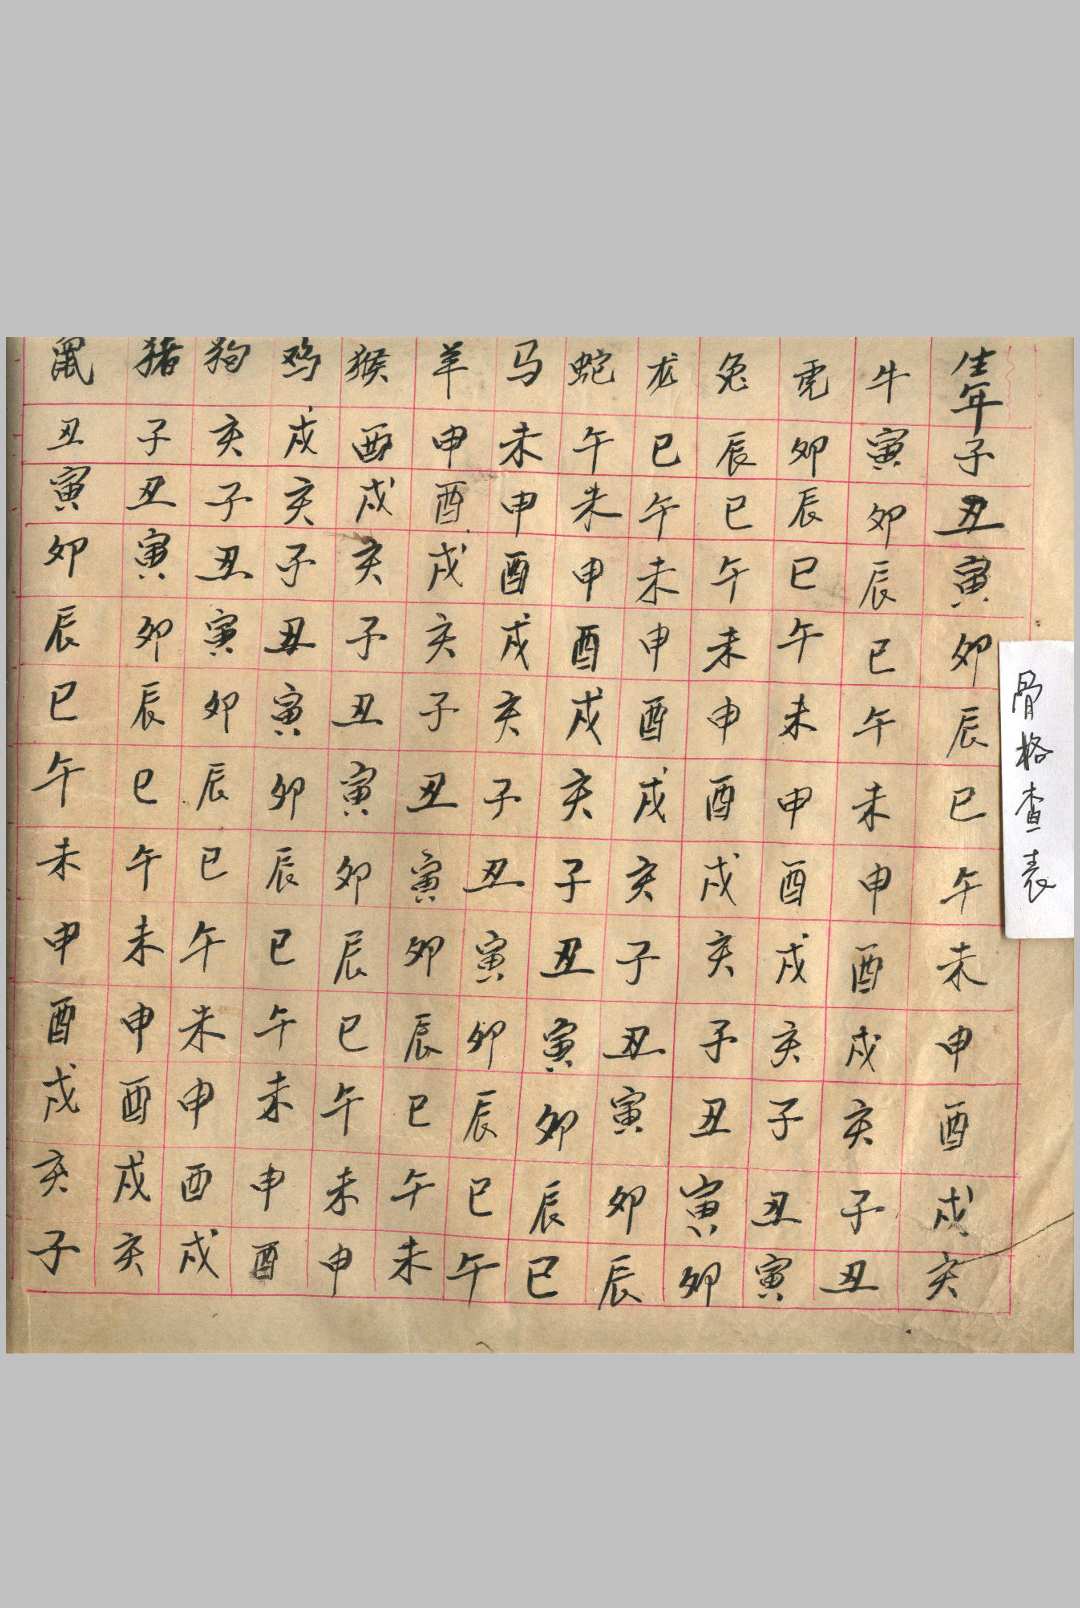 骨格查表
生年子丑寅卯辰巳午未申酉戌亥
牛寅卯辰巳午未申酉戌亥子丑
虎卯辰巳午未申酉戌亥子丑寅
兔辰巳午未申酉戌亥子丑寅卯
龙巳午未申酉戌亥子丑寅卯辰
蛇午未申酉戌亥子丑寅卯辰巳
马未申酉戌亥子丑寅卯辰巳午
羊申酉戌亥子丑寅卯辰巳午未
猴酉戌亥子丑寅卯辰巳午未申
鸡戌亥子丑寅卯辰巳午未申酉
狗亥子丑寅卯辰巳午未申酉戌
猪子丑寅卯辰巳午未申酉戌亥
鼠丑寅卯辰巳午未申酉戌亥子